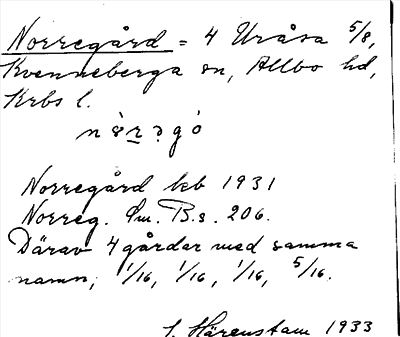 Norregård = 4 Uråsa 5/8,
Kvenneberga sn, Allbo hd,
Krbs l.
Norregård krb 1931
Norreg. Öm. B.s. 206.
Därav 4 gårdar med samma
namn, 1/16, 1/16, 1/16, 5/16.
J. Härenstam 1933